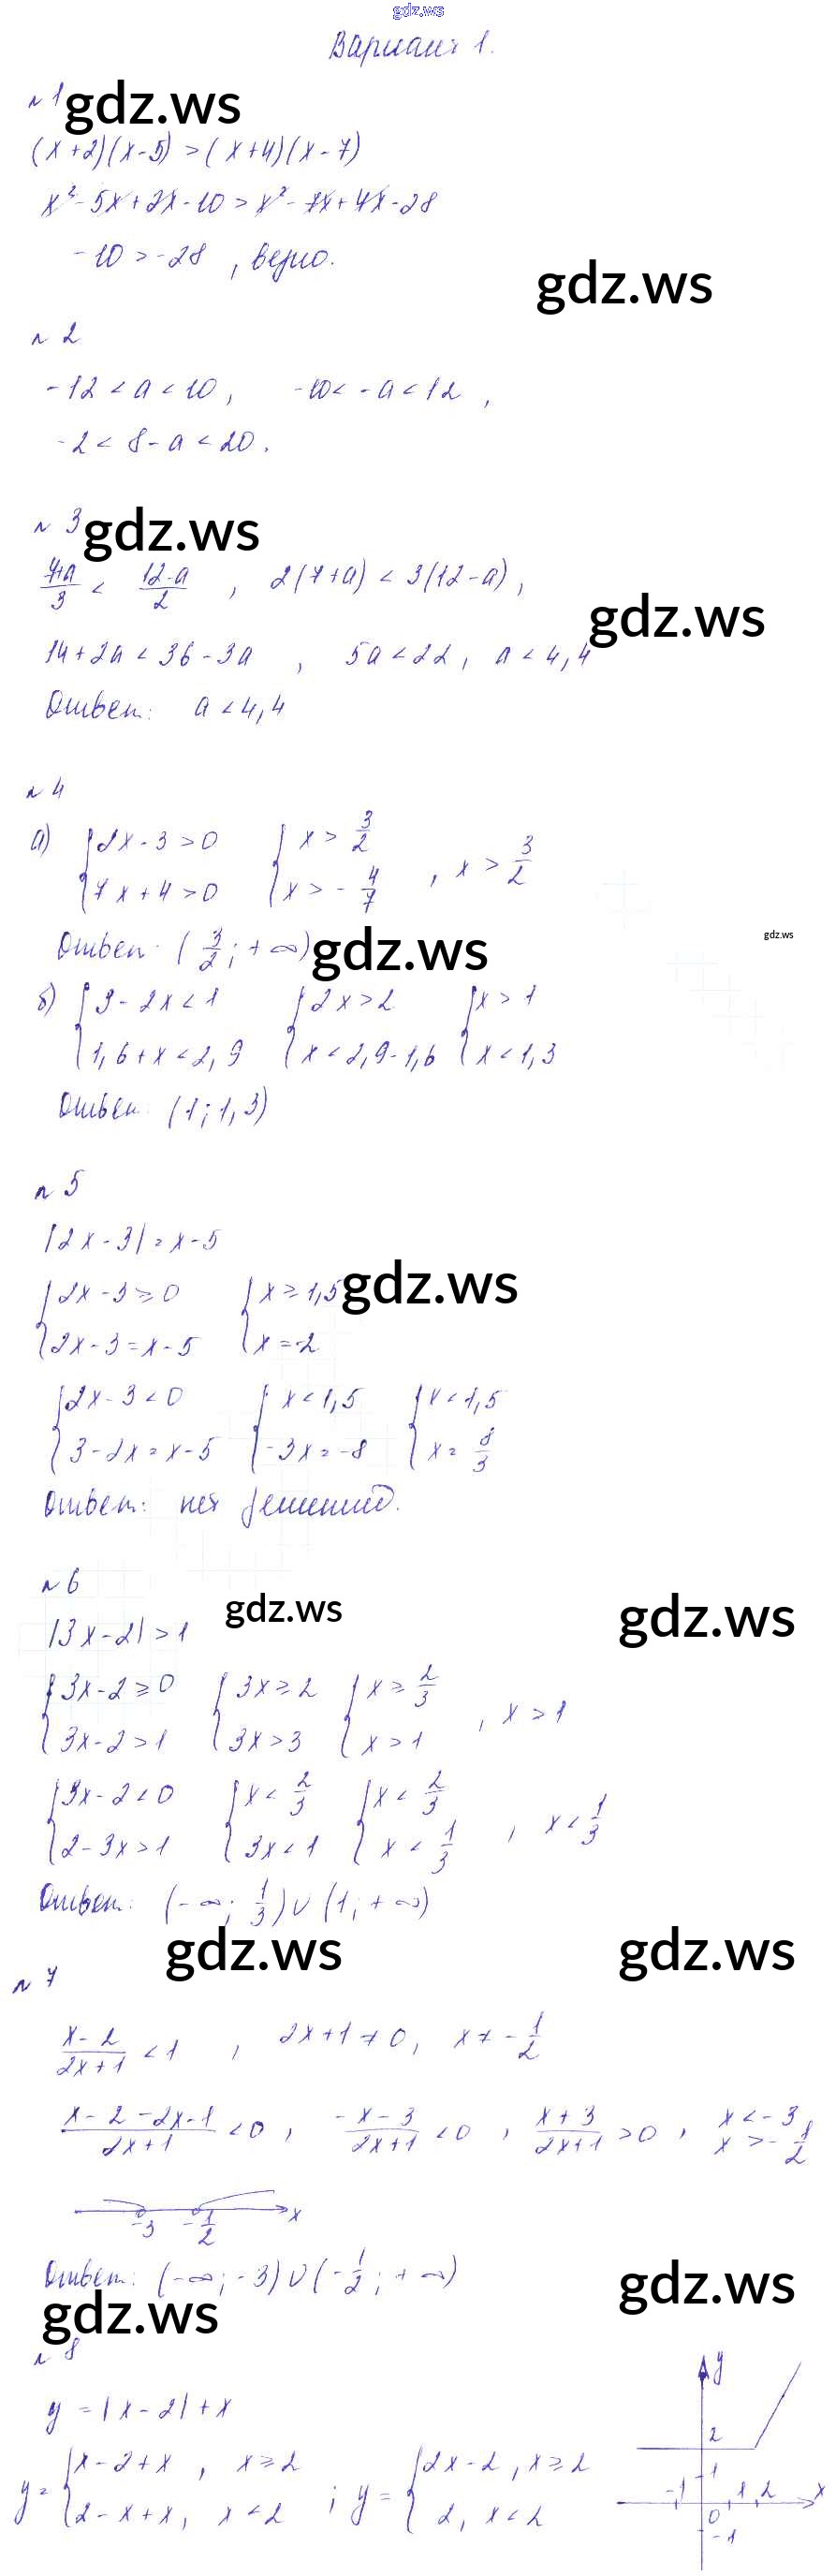 gdz.ws
Вариант 1.
№ 1
gdz.ws
(x+2)(x-5) > (x+4)(x-7)
x² - 5x + 2x - 10 > x² - 7x + 4x - 28
-10 > -28 , верно.
gdz.ws
№ 2
-12 < a < 10 , -10 < -a < 12 ,
-2 < 8 - a < 20 .
№ 3
gdz.ws
(7+a)/3 < (12-a)/2 , 2(7+a) < 3(12-a) ,
gdz.ws
14 + 2a < 36 - 3a , 5a < 22 , a < 4,4
Ответ: a < 4,4
№ 4
а) { 2x - 3 > 0 { x > 3/2
{ 7x + 4 > 0 { x > - 4/7 , x > 3/2
gdz.ws
Ответ: (3/2 ; +∞)
gdz.ws
б) { 3 - 2x < 1 { 2x > 2 { x > 1
{ 1,6 + x < 2,9 { x < 2,9 - 1,6 { x < 1,3
Ответ: (1 ; 1,3)
№ 5
|2x - 3| = x - 5
gdz.ws
{ 2x - 3 ≥ 0 { x ≥ 1,5
{ 2x - 3 = x - 5 { x = -2
{ 2x - 3 < 0 { x < 1,5 { x < 1,5
{ 3 - 2x = x - 5 { -3x = -8 { x = 8/3
Ответ: нет решений.
№ 6
gdz.ws
gdz.ws
|3x - 2| > 1
{ 3x - 2 ≥ 0 { 3x ≥ 2 { x ≥ 2/3
{ 3x - 2 > 1 { 3x > 3 { x > 1 , x > 1
{ 3x - 2 < 0 { x < 2/3 { x < 2/3
{ 2 - 3x > 1 { 3x < 1 { x < 1/3 , x < 1/3
Ответ: (-∞ ; 1/3) ∪ (1 ; +∞)
gdz.ws
gdz.ws
№ 7
(x-2)/(2x+1) < 1 , 2x + 1 ≠ 0 , x ≠ - 1/2
(x-2-2x-1)/(2x+1) < 0 , (-x-3)/(2x+1) < 0 , (x+3)/(2x+1) > 0 , x < -3
x > - 1/2
-3 - 1/2 x
Ответ: (-∞ ; -3) ∪ (- 1/2 ; +∞)
gdz.ws
gdz.ws
№ 8
y = |x - 2| + x
y = { x - 2 + x , x ≥ 2 ; y = { 2x - 2 , x ≥ 2
{ 2 - x + x , x < 2 { 2 , x < 2
y
2
1
-1 1 2 x
0
-1